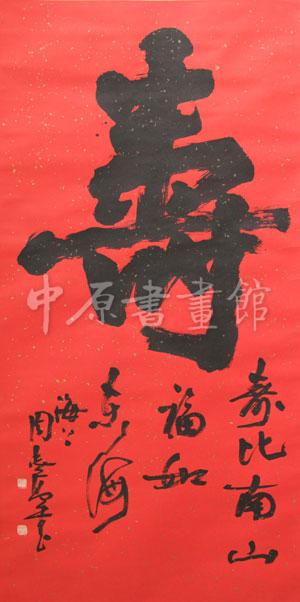 壽
壽比南山
福如
東海
中原書畫館